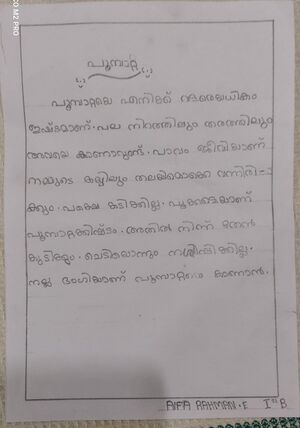 പൂമ്പാറ്റ
പൂമ്പാറ്റയെ എനിക്ക് വളരെയധികം
ഇഷ്ടമാണ്. പല നിറത്തിലും തരത്തിലും
അവയെ കാണാറുണ്ട്. പാവം ജീവിയാണ്
നമ്മുടെ കയ്യിലും തലയിലൊക്കെ വന്നിരി-
ക്കും. പക്ഷെ കടിക്കില്ല. പൂക്കളെയാണ്
പൂമ്പാറ്റക്കിഷ്ടം. അതിൽ നിന്ന് തേൻ
കുടിക്കും. ചെടിയൊന്നും നശിപ്പിക്കില്ല.
നല്ല ഭംഗിയാണ് പൂമ്പാറ്റയെ കാണാൻ.
RAHMAN.E I B
O M2 PRO